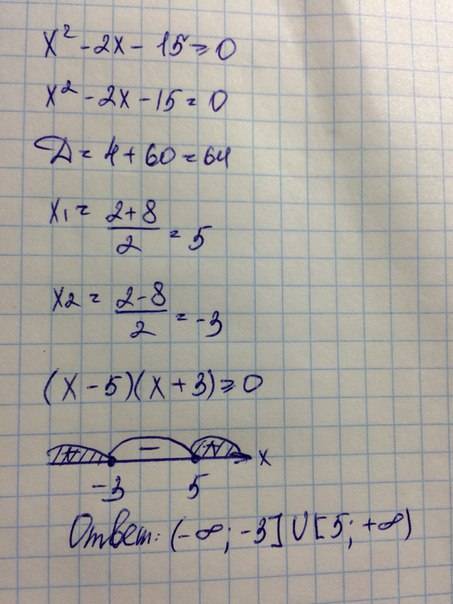 x² - 2x - 15 ≥ 0
x² - 2x - 15 = 0
D = 4 + 60 = 64
x1 = (2+8)/2 = 5
x2 = (2-8)/2 = -3
(x - 5)(x + 3) ≥ 0
+ − + x
-3 5
Ответ: (-∞; -3] U [5; +∞)